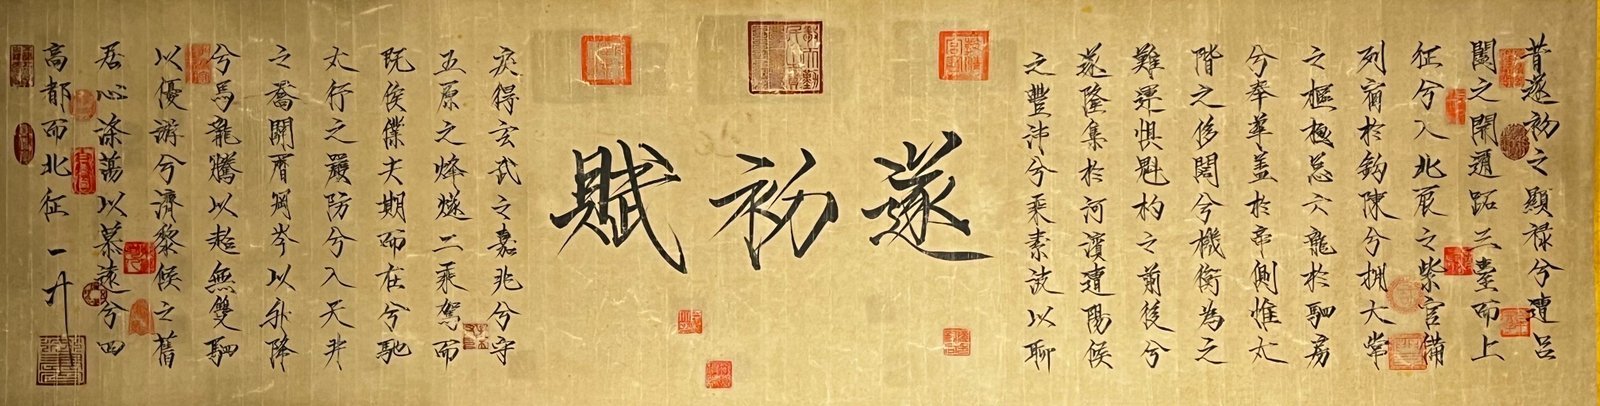 昔遂初之顯祿兮遭呂
闔之開通跖三臺而上
征兮入北辰之紫宮備
列宿於鈎陳兮擁大常
之樞極总六龍於駟房
兮奉華盖於帝側惟太
階之侈闊兮機衡為之
難運惧魁杓之前後兮
遂隆集於河濱遭陽候
之豐沛兮乘素波以聊
遂初賦
戾得玄武之嘉兆兮守
五原之烽燧二乘駕而
既俟僕夫期而在兮馳
太行之嚴防兮入天井
之喬關歷岡岑以升降
兮馬龍騰以超無雙駟
以優游兮濟黎候之舊
居心滌蕩以慕遠兮回
高都而北征